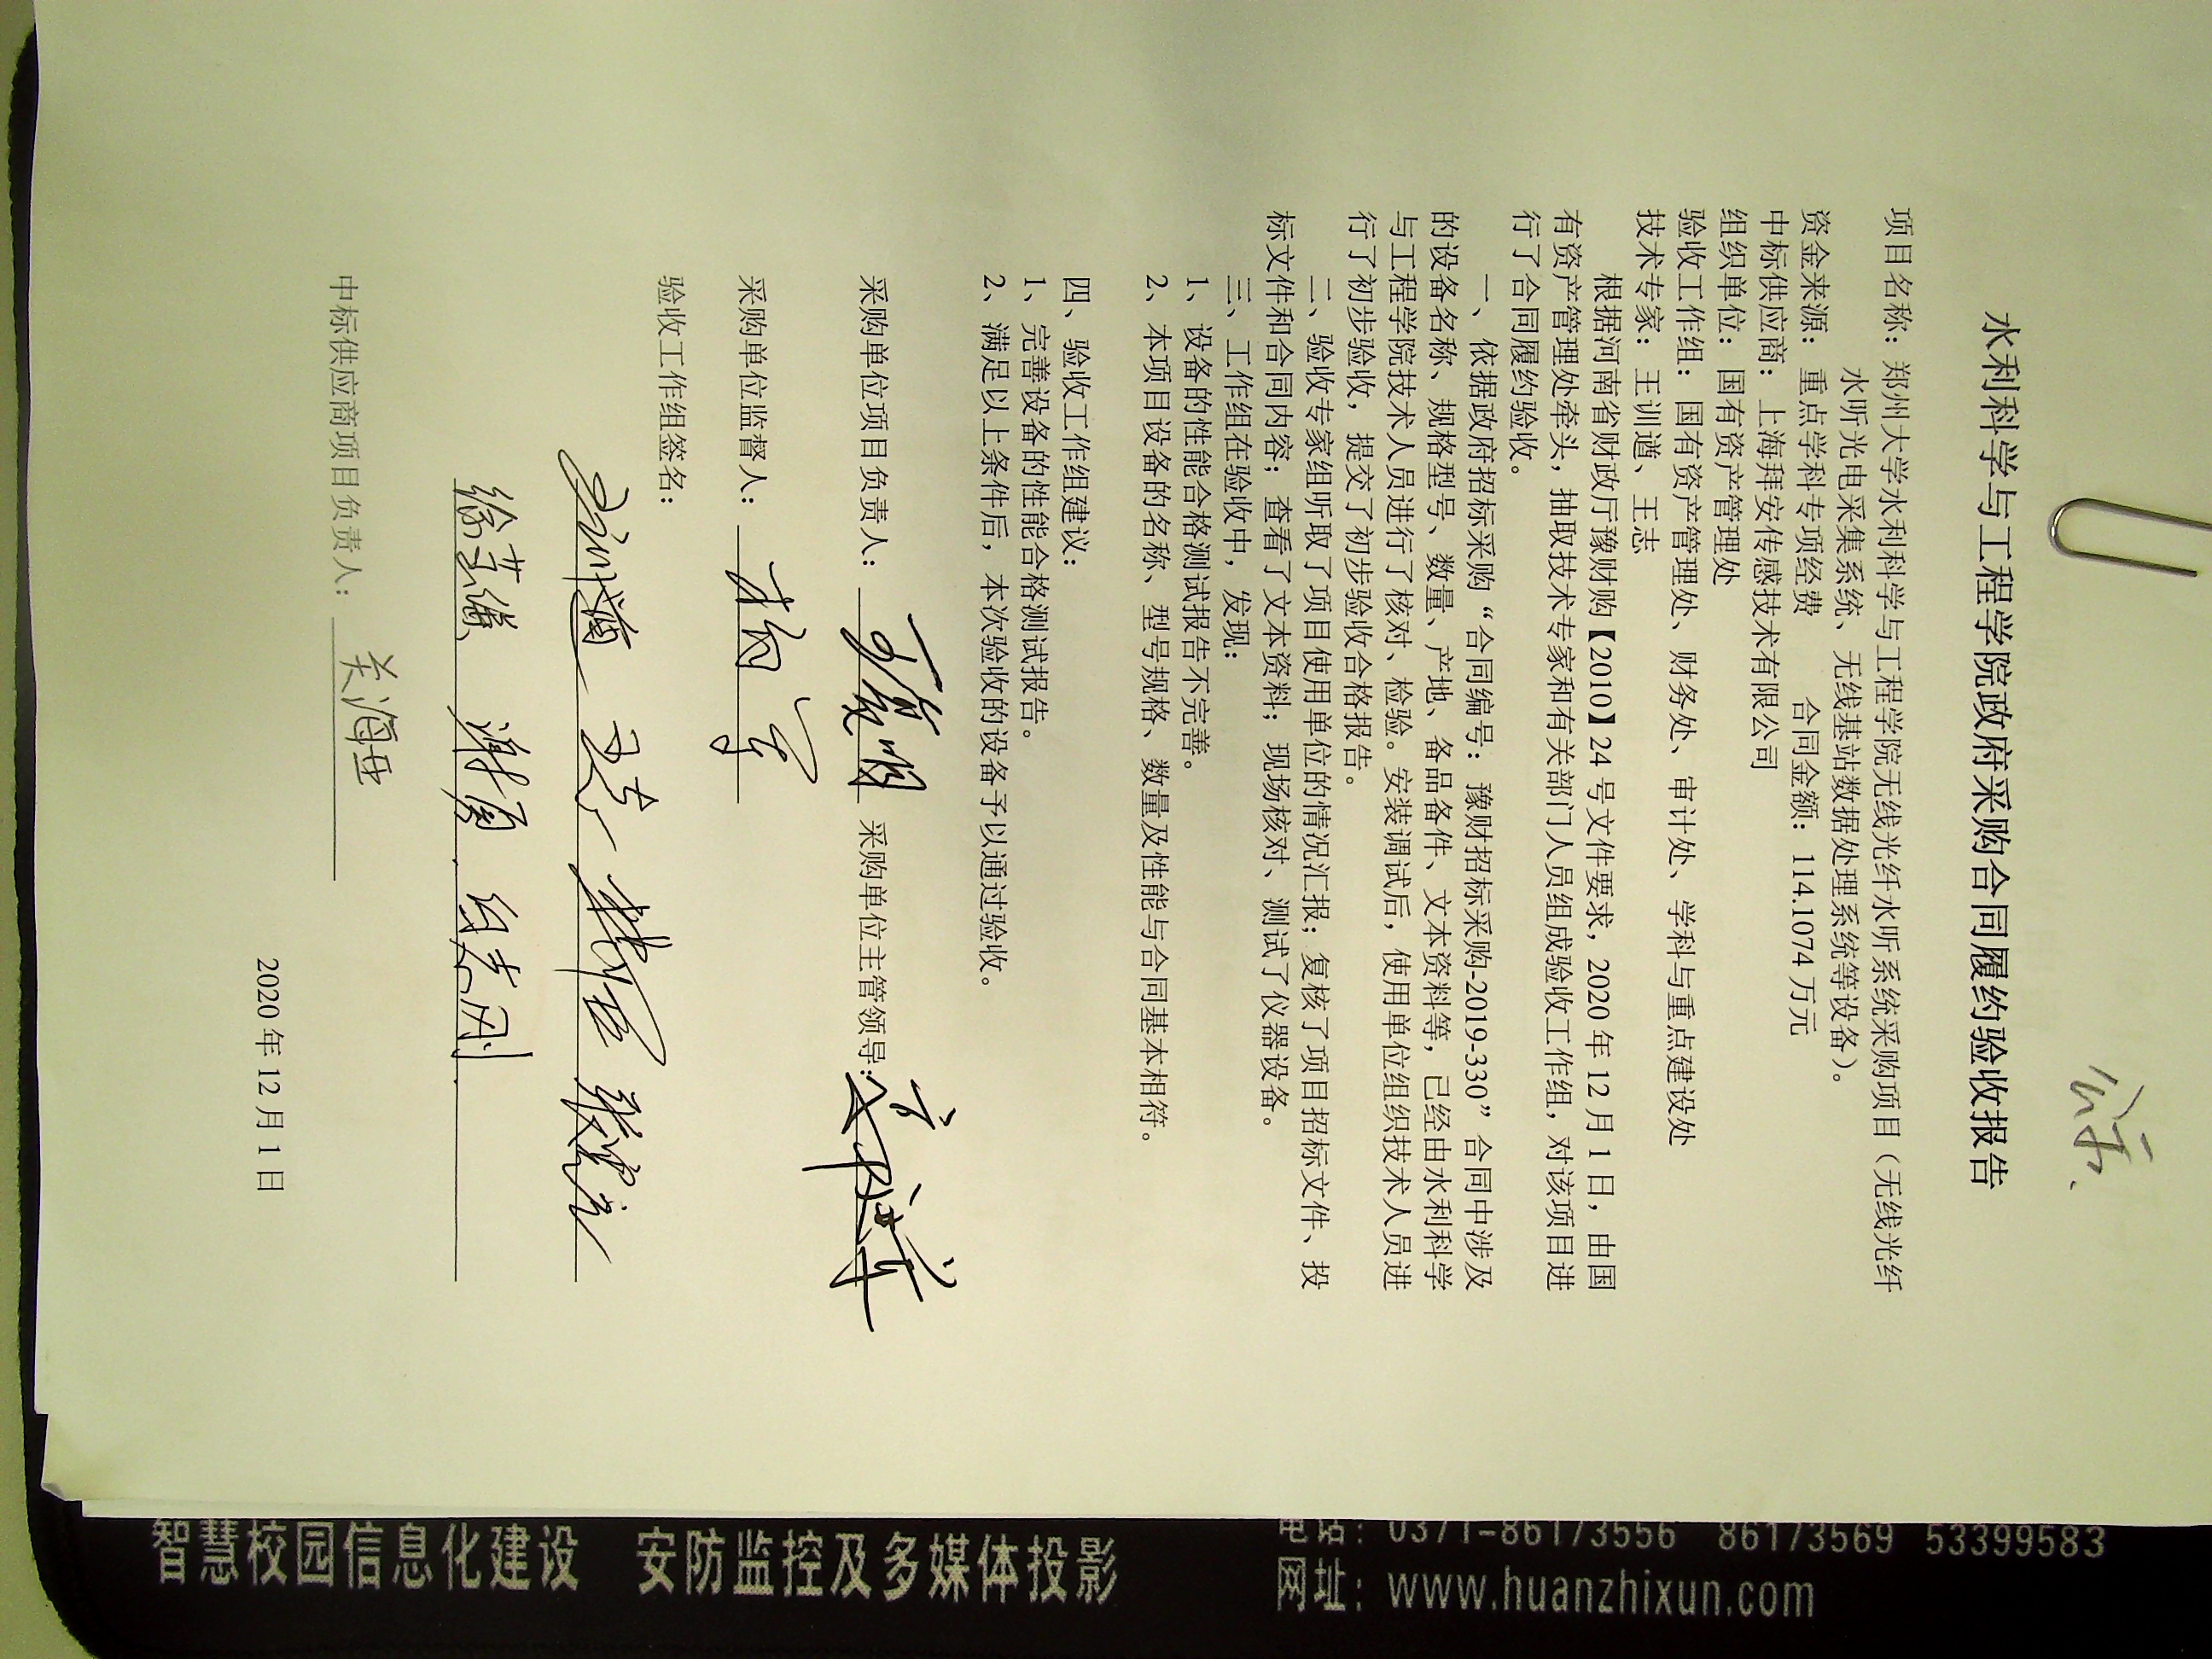 水利科学与工程学院政府采购合同履约验收报告
项目名称：郑州大学水利科学与工程学院无线光纤水听系统采购项目（无线光纤
水听光电采集系统、无线基站数据处理系统等设备）。
资金来源：重点学科专项经费 合同金额：114.1074万元
中标供应商：上海拜安传感技术有限公司
组织单位：国有资产管理处
验收工作组：国有资产管理处、财务处、审计处、学科与重点建设处
技术专家：王训遒、王志
根据河南省财政厅豫财购【2010】24号文件要求，2020年12月1日，由国
有资产管理处牵头，抽取技术专家和有关部门人员组成验收工作组，对该项目进
行了合同履约验收。
一、依据政府招标采购“合同编号：豫财招标采购-2019-330”合同中涉及
的设备名称、规格型号、数量、产地、备品备件、文本资料等，已经由水利科学
与工程学院技术人员进行了核对、检验。安装调试后，使用单位组织技术人员进
行了初步验收，提交了初步验收合格报告。
二、验收专家组听取了项目使用单位的情况汇报；复核了项目招标文件、投
标文件和合同内容；查看了文本资料；现场核对、测试了仪器设备。
三、工作组在验收中，发现：
1、设备的性能合格测试报告不完善。
2、本项目设备的名称、型号规格、数量及性能与合同基本相符。
四、验收工作组建议：
1、完善设备的性能合格测试报告。
2、满足以上条件后，本次验收的设备予以通过验收。
采购单位项目负责人： 采购单位主管领导：
采购单位监督人：
验收工作组签名：
中标供应商项目负责人：关海亚
2020年12月1日
智慧校园信息化建设 安防监控及多媒体投影
电话：0371-86173556 86173569 53399583
网址：www.huanzhixun.com